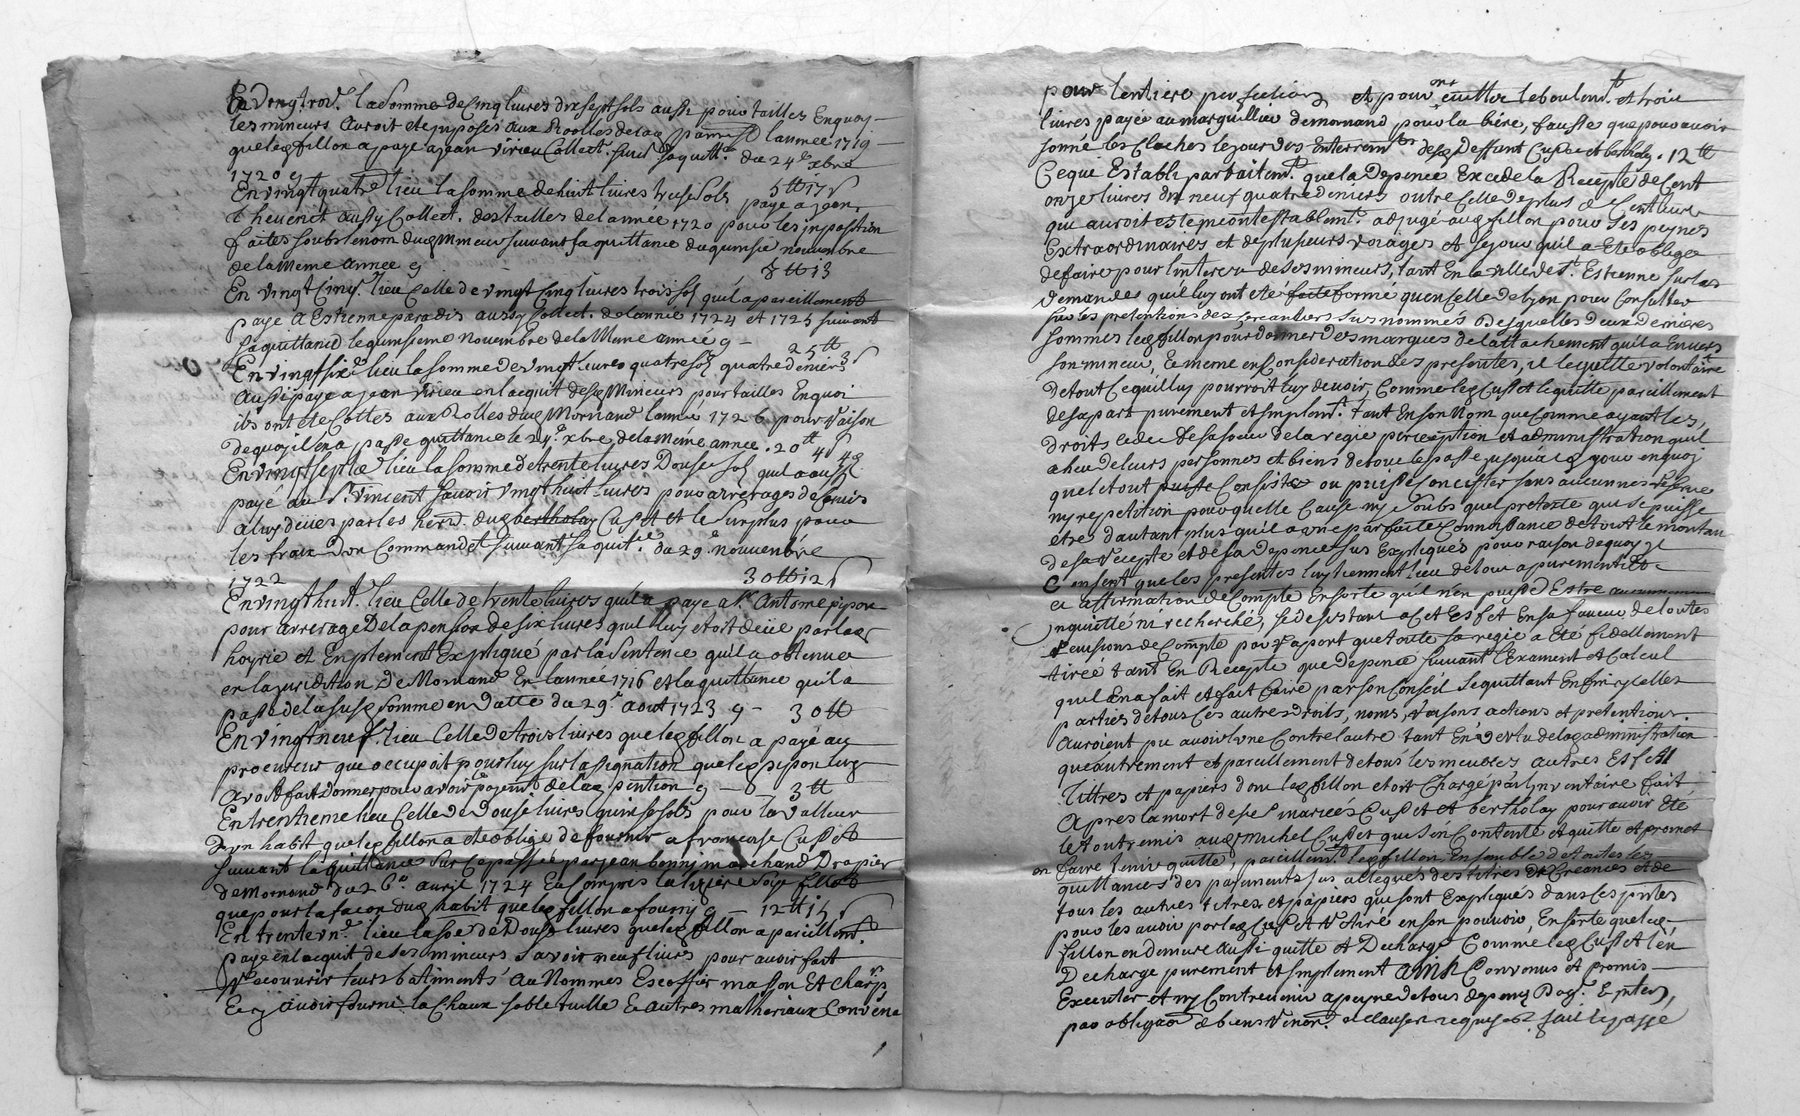 En Vingtrois.e la somme de Cinq livres dix sept sols aussi pour tailles En quoy
les mineurs auroit ete jmposés aux Roolles de lad. parroisse lannee 1719
que led. fillon a payé a jean virieu Collect. suiv.t sa quitt.e du 24.e xbre
1720 cy 5 tt 17 s
En vingt quatre lieu la somme de huit livres treise sols payé a jean
Thevenet aussy Collect. des tailles de lannée 1720 pour les jnposition
faites soubs le nom dud. Mineur suivant sa quittance du quinsie novembre
de la Meme année cy 8 tt 13
En vingt Cinq. lieu Celle de vingt Cinq livres trois sol qu'il a pareillement
payé a Estienne paradis aussy Collect. de lannée 1724 et 1725 suivant
sa quittance le quinsieme Novembre de la Meme année cy 25 tt 3 s
En vingt six.e lieu la somme de vingt livres quatre sol quatre deniers
aussi payé a jean virieu en lacquit desd. Mineurs pour tailles En quoi
ils ont ete Cottés aux Rolles dud. Mornand lannée 1726 pour Raison
de quoy il en a passé quittance le 24.e xbre de la Méme année . 20 tt 4 s 4 d
En vingt sept.e lieu la somme de trente livres Douse sol qu'il a aussy
payé au S.r Vincent savoir vingt huit livres pour arrerages de servis
a luy deües par les heri. dud. bertholay Cusset et le surplus pour
les fraix d'un Commandet suivant sa quit.ce du 29.e nouvembre
1722 30 tt 12 s
En vingt huit. lieu Celle de trente livres qu'il a payé a M.r Antoine pipon
pour arrerage De la pension de six livres qui luy etoit deüe par lad.
hoyrie et Enplement Expliqué par la Sentence qu'il a obtenue
en la juridition De Mornand En lannée 1716 et la quittance qu'il a
passé de la susd. somme en datte du 29.e aout 1723 cy 30 tt
En vingt neuf. lieu Celle de trois livres que led. fillon a payé au
procureur que occupoit pour luy sur lassignation que led. pipon luy
avoit fait donner pour avoir payem.t de lad. pention cy 3 tt
En trentieme lieu Celle de Douse livres quinse sols pour la valleur
D'un habit que led. fillon a ete obligé de fournir a françoise Cusset
suivant la quittance sur Ce passée par jean bonnj marchand Drapier
de Mornand du 26.e avril 1724
que pour la façon dud. habit que led. fillon a fourny cy 12 tt 15 s
En trente un.e lieu la sôe de Douse livres que led. fillon a pareillem.t
payé en lacquit de ses mineurs savoir neuf livres pour avoir fait
Recouvrir leurs batiments au Nommés Escoffier masson et charp.r
En avoir fourni la Chaux sable tuille & autres matheriaux Convéna
pour lentiere perfection et pour le boulem.t et trois
livres payée au marguillier de mornand pour la biére, fausse que pour avoir
sonné les Cloches le jour des Enterrem.ts desd. Deffunt Cusset et bertholay . 12 tt
Ce qui Establi parfaitem.t que la Depence Excede la Recepte de Cent
onze livres dix neuf quatre deniers outre Celle de plus de Cent livres
qui auroit esté jncontestablem.t adjugé aud. fillon pour ses peynes
Extraordinaires et de plusieurs voiages et sejour qu'il a ete obligé
de faire pour linterest de ses mineurs, tant En la ville de S.t Estienne sur les
demandes qu'il luy ont eté faite formé qu'en Celle de lyon pour Consulter
sur les pretentions des creanciers sus nommés Desquelles deux dernieres
sommes led. fillon pour donner des marques de lattachement qu'il a Envers
son mineur, & meme en Consideration des presentes, il le quitte volontaire
de tout Ce quil luy pourroit luy devoir, Comme led. Cusset le quitte pareillement
de sa part purement et simplem.t tant En son Nom que Comme ayant les
droits Cedés de sa soeur de la regie perception et administration quil
a heu de leurs personnes et biens de tout le passé jusqu'a Ce jour en quoj
quel et tout puisse Consister ou puisse Concister sans aucunnes reserve
ny repetition pour quelle Cause ny soubs quel pretexte qui se puisse
etre, d'autant plus qu'il a une parfaite Connoissance de tout le montan
de sa recepte et de sa Depence sus Expliqués pour raison de quoy jl
Consent que les presentes luy tiennent lieu de tout apurement &
et affirmation de Compte En sorte qu'il n'en puisse Estre
jnquietté ni recherché, se desistant a Cet Effet En sa faveur de toutes
Revisions de Compte pour raport que toute sa regie a Eté fidellement
tirée tant En Recepté que depence suivant l'Exament et Calcul
qu'il En a fait et fait faire par son Conseil se quittant Enfin jcelles
parties de tous Ces autres droits, noms, raisons actions et pretentions
auroient pu avoir lune Contre lautre tant En Vertu de lad. administration
qu'autrement et pareillement de tous les meubles autres Effet
Tittres et papiers dont led. fillon etoit Chargé par jnventaire fait
apres la mort desd. mariés Cusset et bertholay pour avoir Eté
le tout remis aud. Michel Cusset qui s'en Contente et quitte et promet
faire tenir quitte, pareillem.t led. fillon Ensamble de toutes les
quittances des payements sus allegués des titres de Creances et de
tous les autres titres et papiers qui sont Expliqués dans Ces p.ntes
pour les avoir par led. Cusset retiré en son pouvoir, En sorte que led.
fillon en demeure aussi quitte et Dechargé Comme led. Cusset l'en
Decharge purement et simplement Ainsi Convenus et promis
Executer et ny Contrevenir a peyne de tous depens Dom. & jnter.
par obligaon de biens Renon. et clauses requises fait & passé